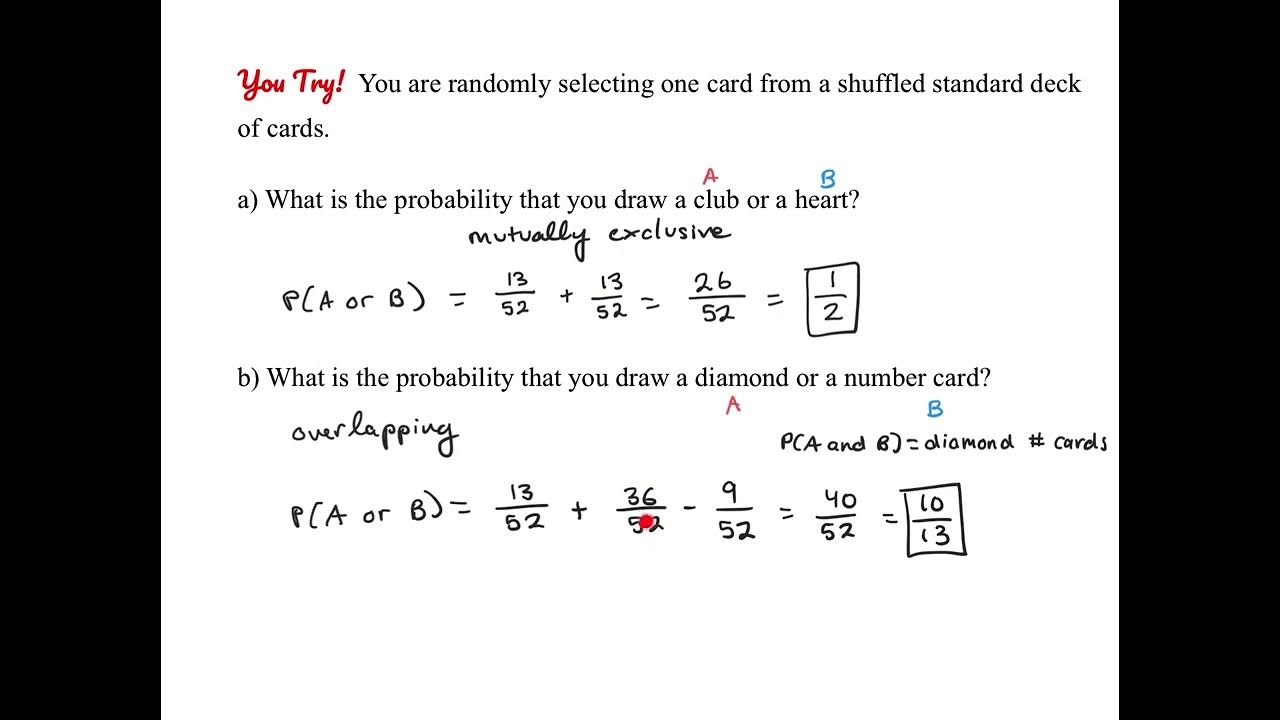 You Try! You are randomly selecting one card from a shuffled standard deck
of cards.
A B
a) What is the probability that you draw a club or a heart?
mutually exclusive
P(A or B) = 13/52 + 13/52 = 26/52 = 1/2
b) What is the probability that you draw a diamond or a number card?
A B
overlapping P(A and B) = diamond # cards
P(A or B) = 13/52 + 36/52 - 9/52 = 40/52 = 10/13